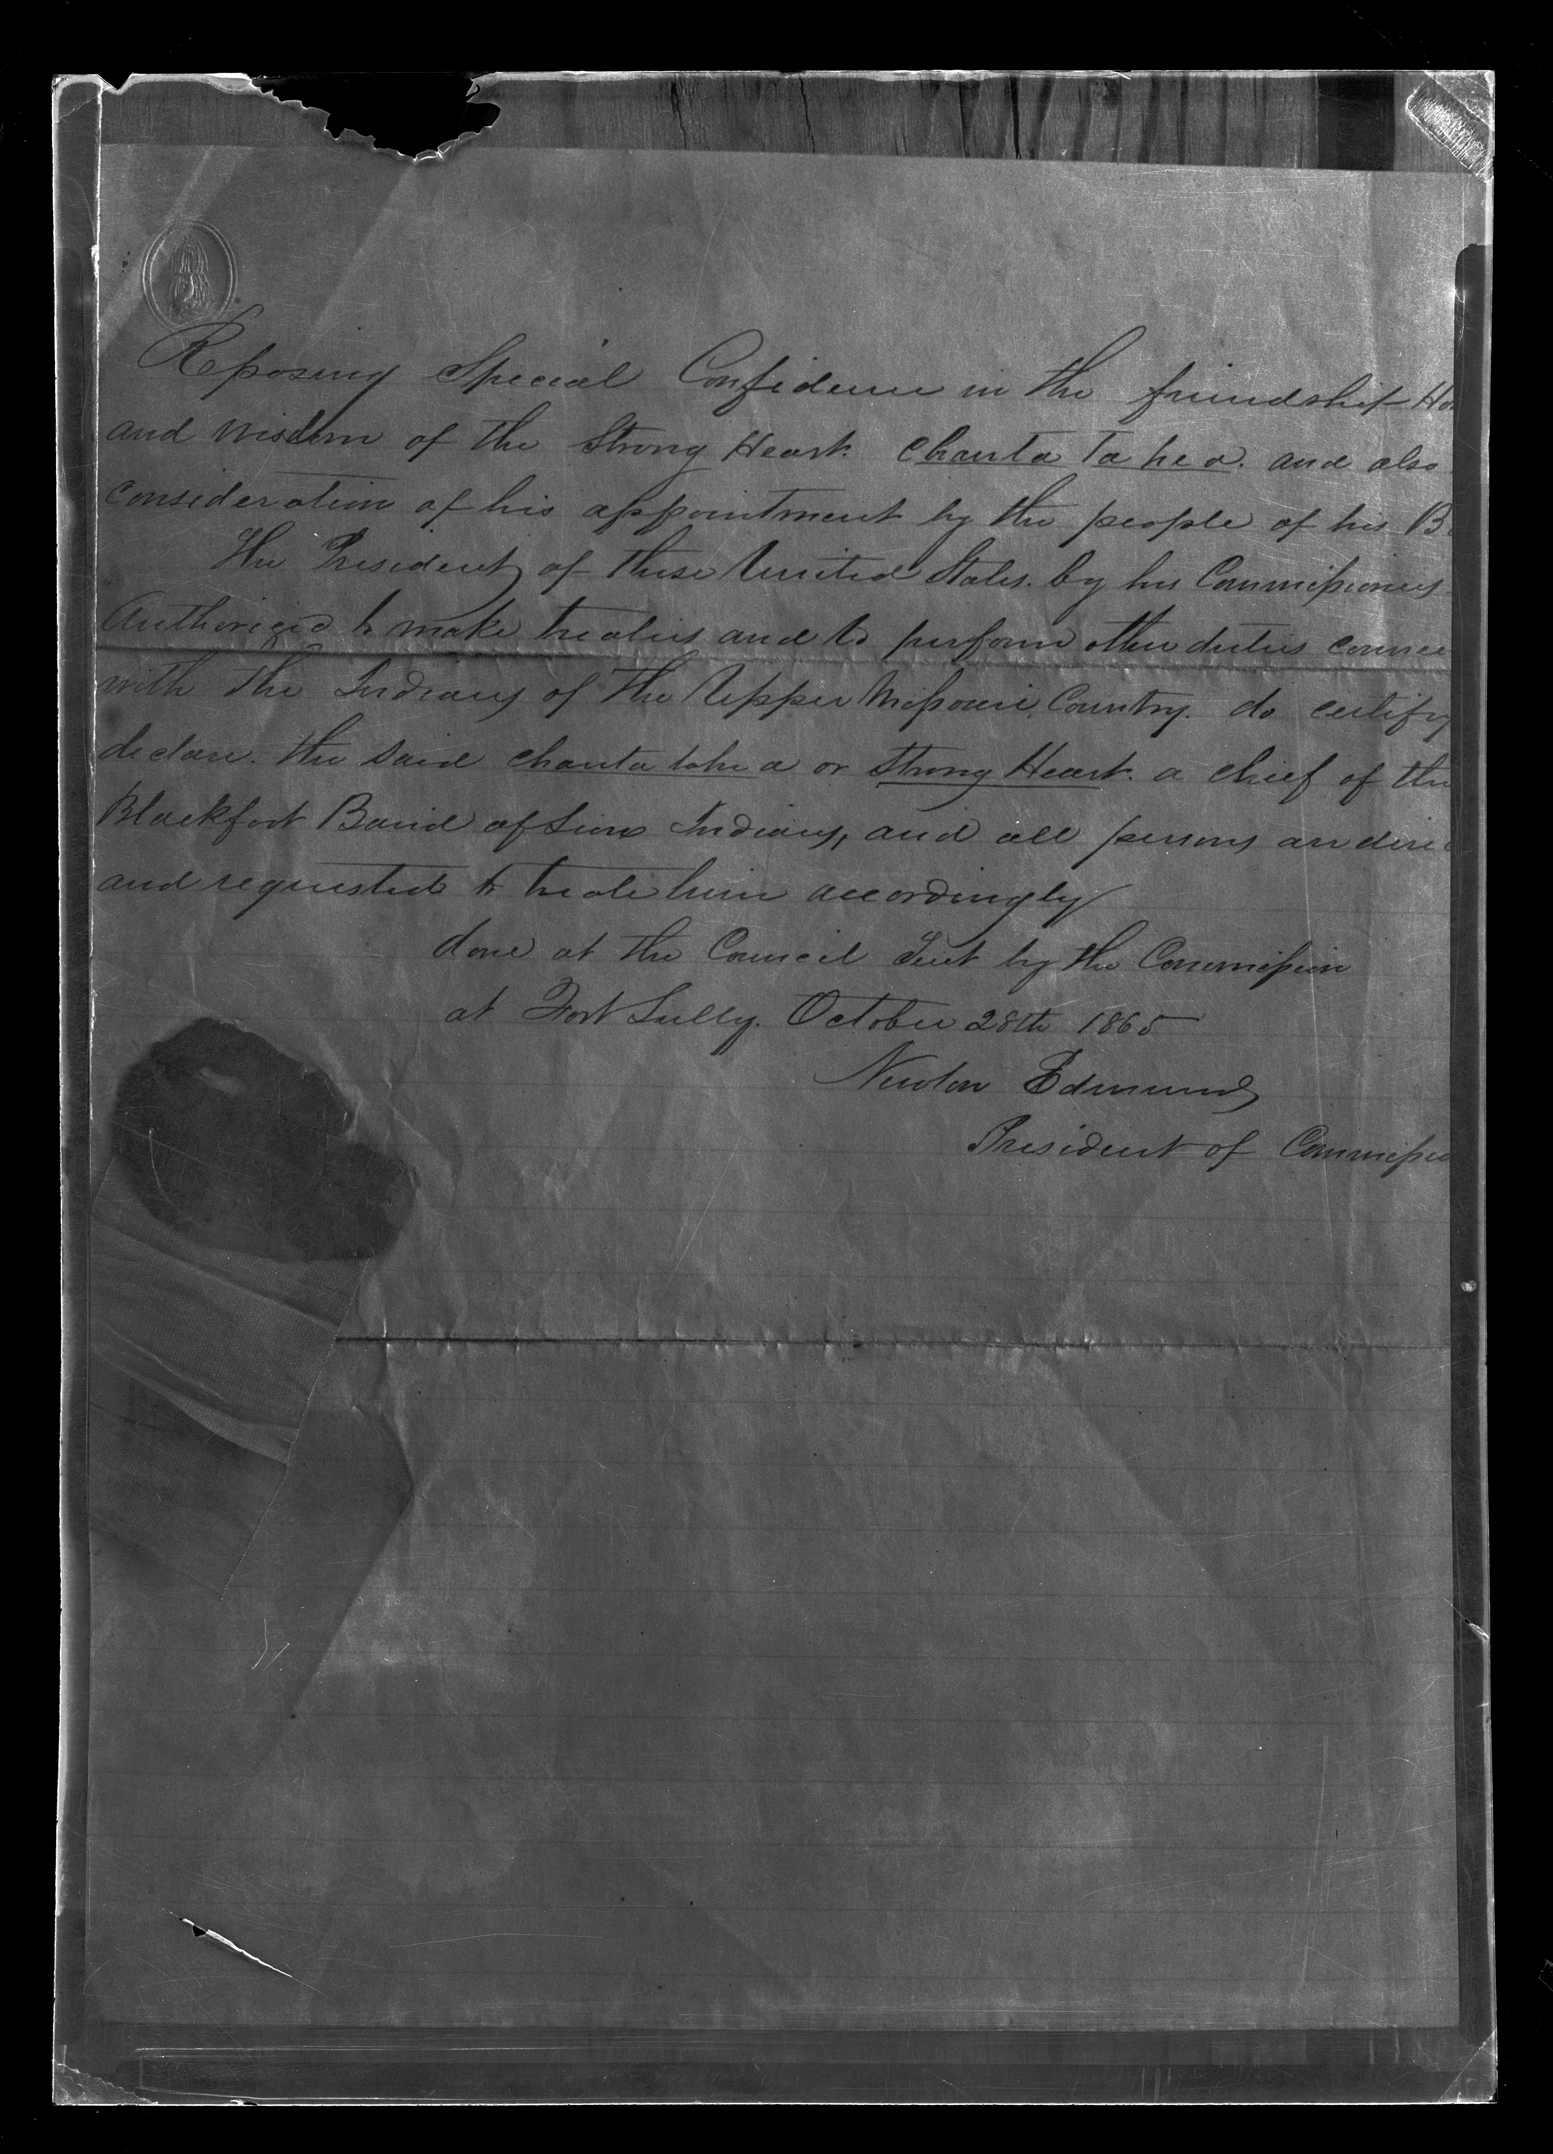 Reposing Special Confidence in the friendship Ho
and wisdom of the Strong Heart. Chanta Ta he a. and also
consideration of his appointment by the people of his B
The President of these United States. by his Commissioners
Authorized to make treaties and to perform other duties connec
with the Indians of the Upper Missouri Country. do certify
declare. the said chanta tahe a or Strong Heart. a chief of the
Blackfoot Band of Sioux Indians, and all persons are direc
and requested to treate him accordingly
done at the Council Tent by the Commission
at Fort Sully. October 28th 1865
Newton Edmunds
President of Commissio